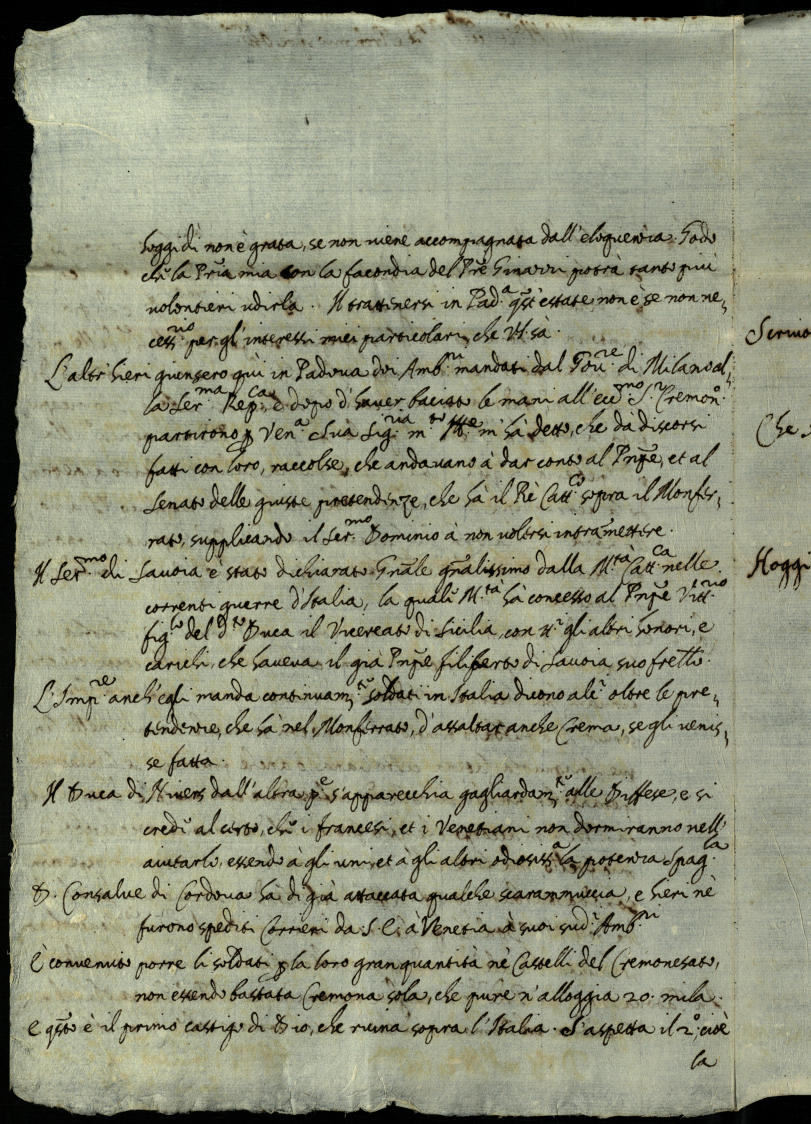 hoggidì non è grata, se non viene accompagnata dall'eloquenza. Godo
che la Pr̃ia mia con la facondia del Prẽ potrà tanto più
volontieri udirla. Il trattinersi in Pad.ª qst'estate non è se non ne,
cess.rio per gl'interessi miei particolari, che VS sà.
L'altr'hieri giunsero quì in Padova doi Amb.ri mandati dal Gov.re di Milano al,
la Ser.ma Rep.ca, e dopo d'haver bacciato le mani all'ecc.mo S.r Cremon.o
partirono p Ven.a Sua Sig.ria m.to Ill.re m'hà detto, che da discorsi
fatti con loro, raccolse, che andavano à dar conto al Prñpe, et al
Senato delle giuste pretendenze, che hà il Rè Catt.co sopra il Monfer,
rato, supplicando il Ser.mo Dominio à non volersi intramettere.
Il Ser.mo di Savoia è stato dichiarato Gñale gñalissimo dalla M.tà Catt.ca nelle
correnti guerre d'Italia, la quale M.tà hà concesso al Prñpe Vitt.rio
fig.lo del d.to Duca il Vicereato di Sicilia, con gli altri honori, e
carichi, che haveva il già Prñpe filiberto di Savoia suo frello.
L'Imp.re anch'egli manda continuam.te soldati in Italia dicono alc.i oltre le pre,
tendenze, che hà nel Monferrato, d'assaltar anche Crema, se gli venis,
se fatta.
Il Duca di Nivers dall'altra p.e s'apparecchia gagliardam.te alle diffese, e si
crede al certo, che i francesi, et i Venetiani non dormiranno nell'
aiutarlo, essendo à gli uni, et à gli altri odiosiss.a la potenza Spag.la
D. Consalvo di Cordova hà di già attaccata qualche scaramuccia, e hieri nè
furono spediti Corrieri da S. E. à Venetia à suoi sud.i Amb.ri
È convenuto porre li soldati p la loro gran quantità nè Castelli del Cremonesato,
non essendo bastata Cremona sola, che pure n'alloggia 20. mila.
E qsto è il primo castigo di Dio, che ruina sopra l'Italia. S'aspetta il 2.o, cioè
la
Scrivo
Che
Hoggi